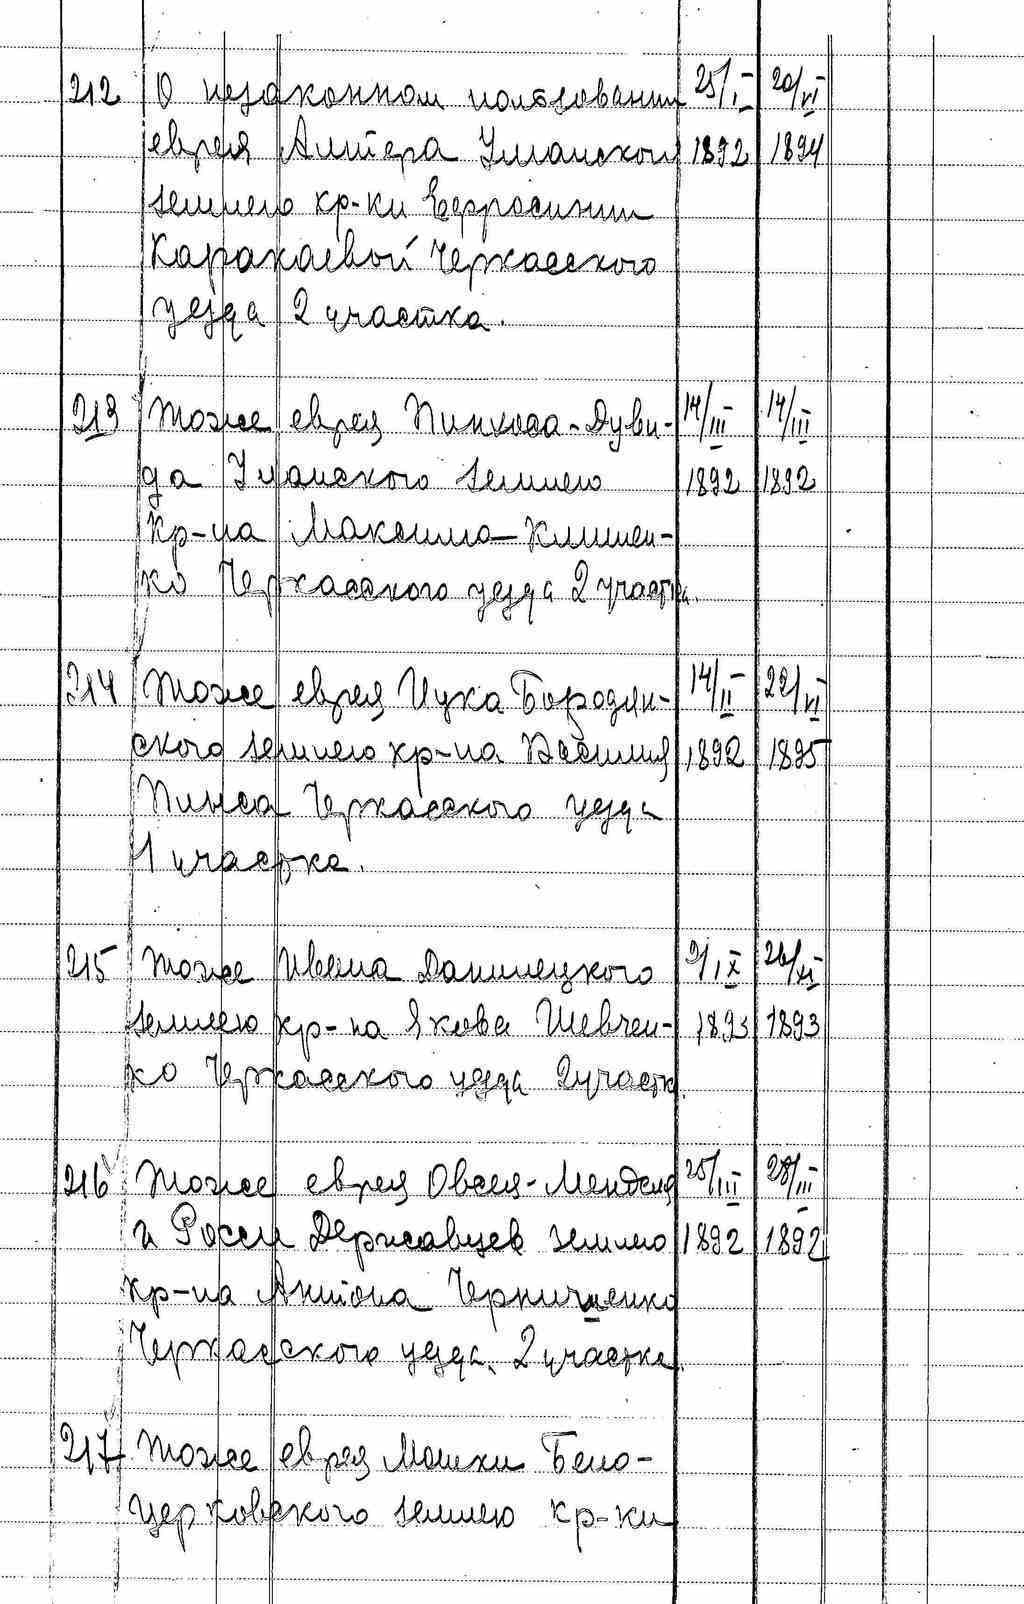 212 О незаконном пользовании 25/I 20/VI
еврея Алтера Уманского 1892 1894
землею кр-ки Евфросинии
Каракаевой Черкасского
уезда 2 участка.
213 Тоже еврея Пинхоса-Дуви- 14/III 14/III
да Уманского землею 1892 1892
кр-на Максима Климен-
ко Черкасского уезда 2 участка.
214 Тоже еврея Ицка Бородян- 14/II 22/VI
ского землею кр-на Василия 1892 1895
Пинса Черкасского уезда
1 участка.
215 Тоже Ивана Данилецкого 9/IX 26/XI
землею кр-на Якова Шевчен- 1893 1893
ко Черкасского уезда 2 участк.
216 Тоже еврея Овсея-Менделя 25/III 28/III
и Росси Державцев землею 1892 1892
кр-на Антона Черниченко
Черкасского уезда, 2 участка.
217 Тоже еврея Мошки Бело-
церковского землею кр-ки